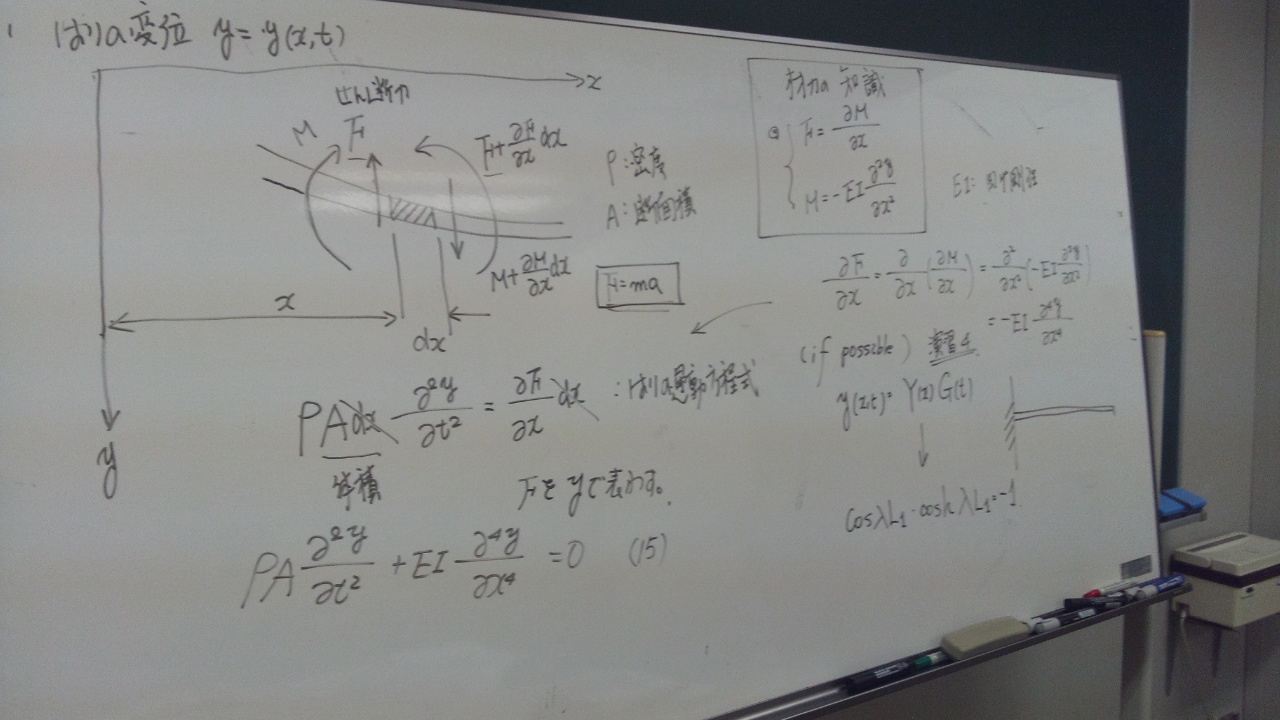 はりの変位 y = y(x,t)
x
せん断力
M
F
F+∂F/∂x dx
M+∂M/∂x dx
x
dx
y
ρ:密度
A:断面積
F=ma
材力の知識
F=∂M/∂x
M=-EI ∂²y/∂x²
EI: 曲げ剛性
∂F/∂x = ∂/∂x (∂M/∂x) = ∂²/∂x² (-EI ∂²y/∂x²)
= -EI ∂⁴y/∂x⁴
ρAdx ∂²y/∂t² = ∂F/∂x dx :はりの運動方程式
体積
Fをyで表わす。
ρA ∂²y/∂t² + EI ∂⁴y/∂x⁴ = 0 (15)
(if possible) 演習4
y(x,t)= Y(x)G(t)
cosλL₁·coshλL₁=-1